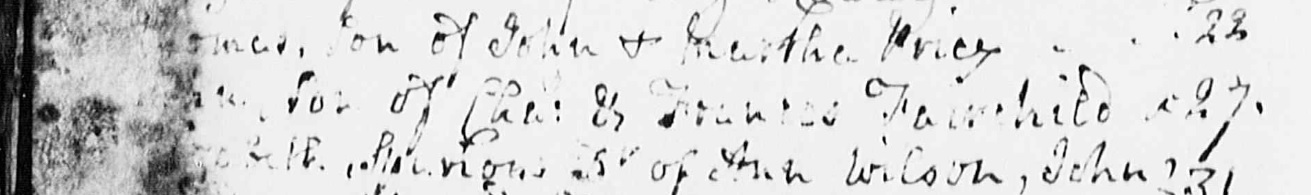 omas, Son of John & Martha Price . . . 22
Son of Cha: & Frances Fairchild 27.
of Ann Wilson, John 31